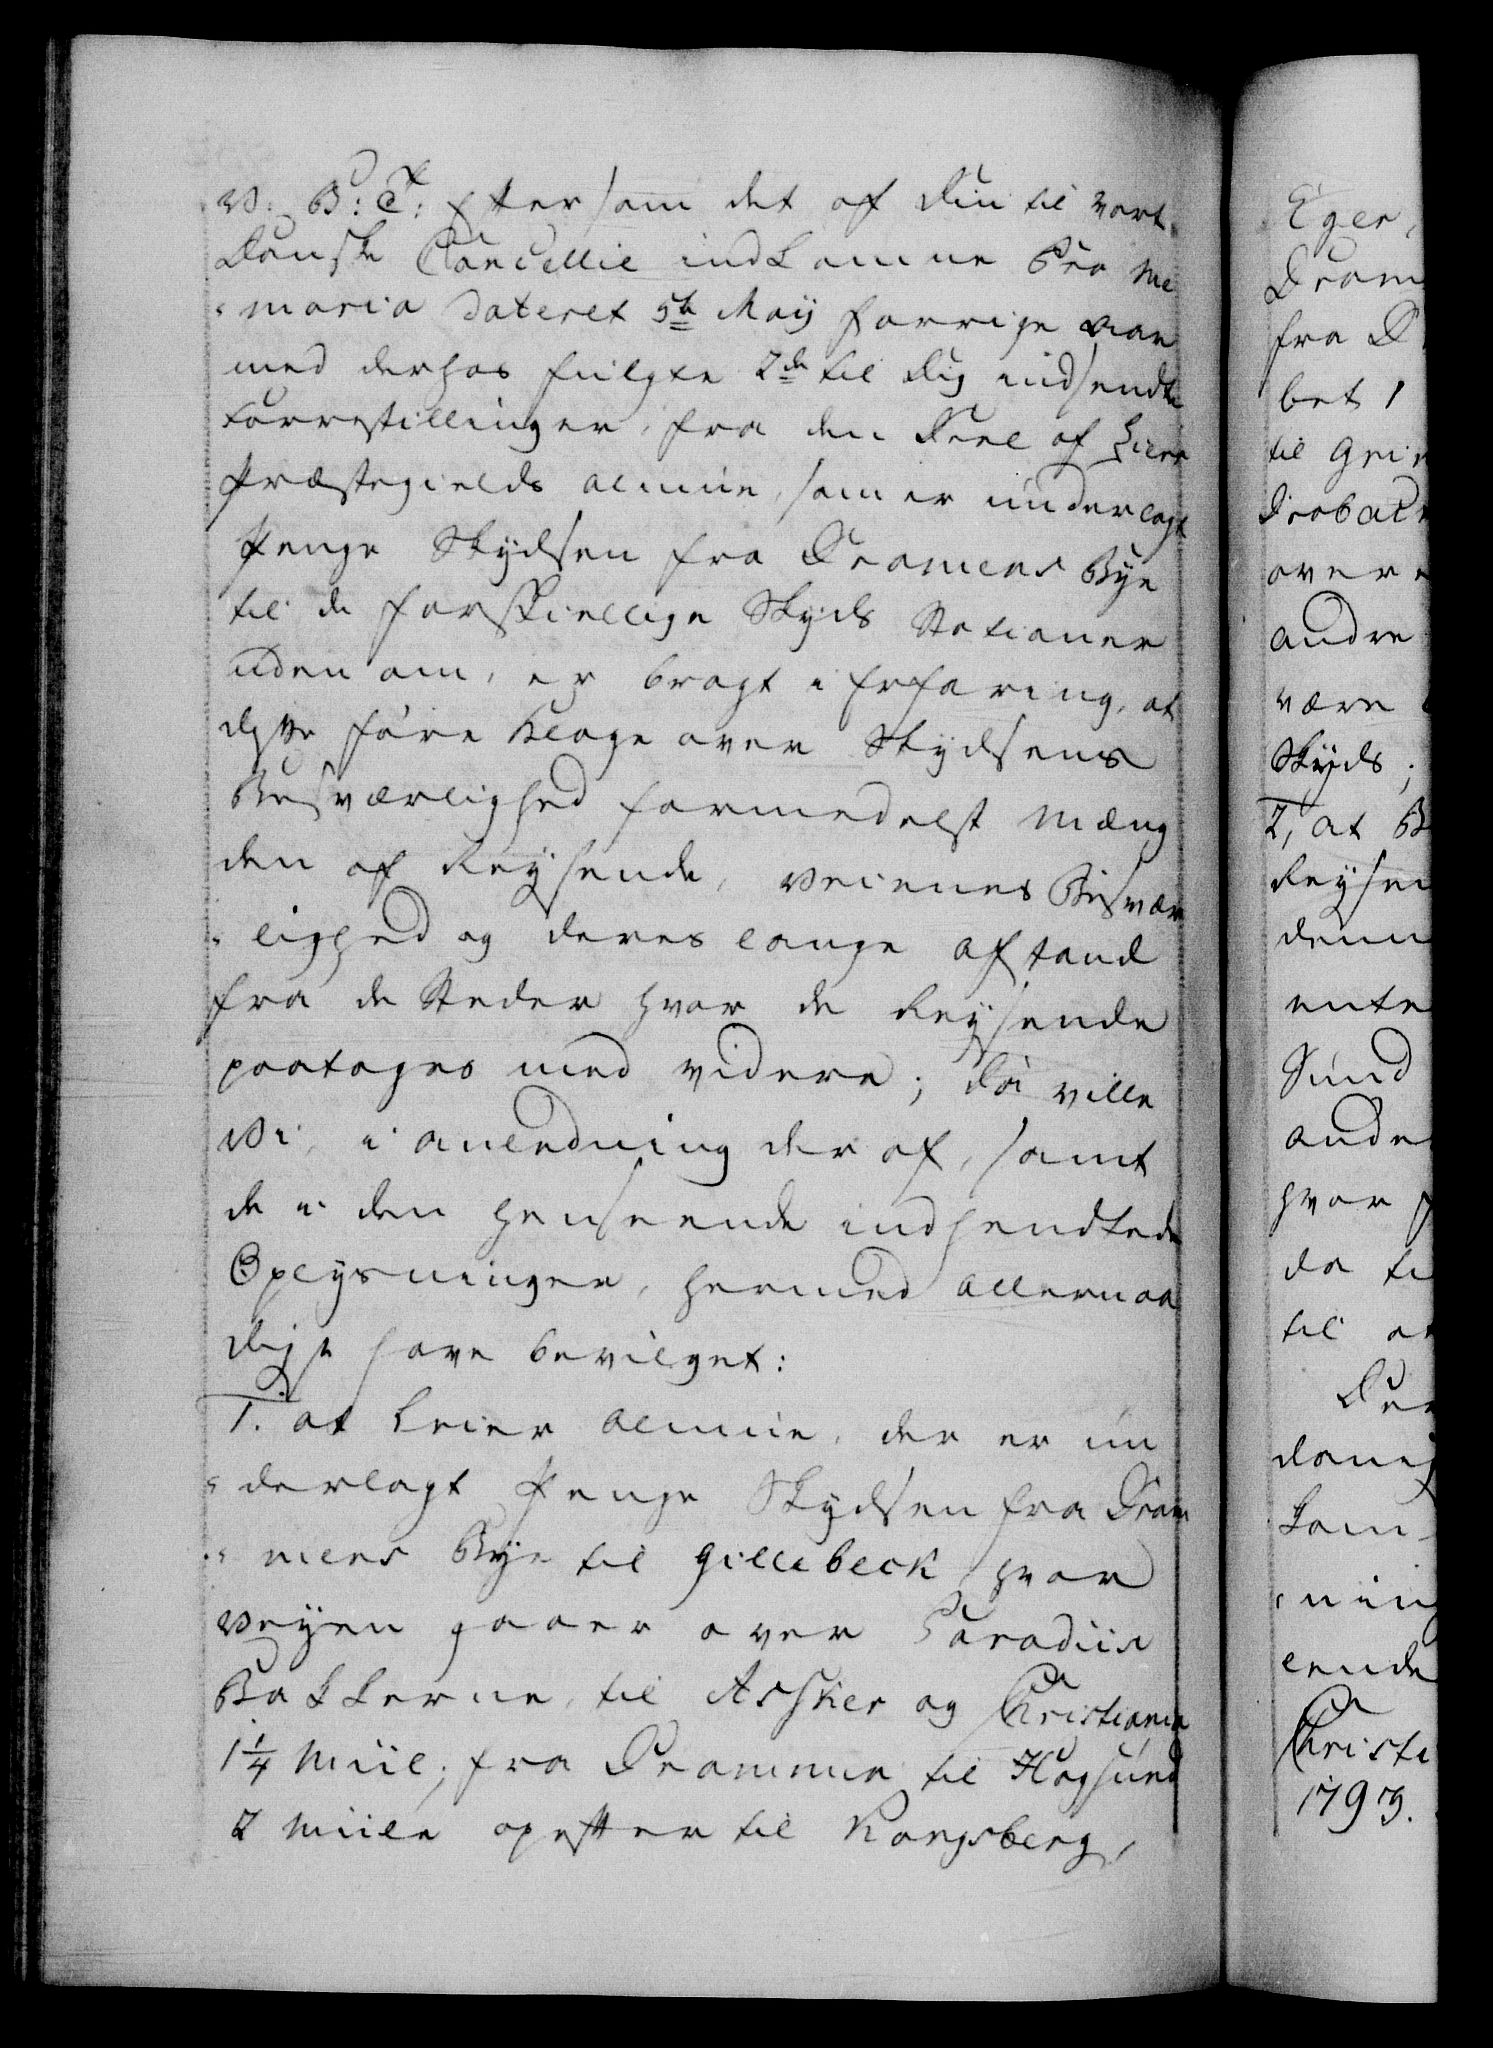 V: B: T: Efter som det af Din til vort
Danske Cancellie indkomne Pro Me
moria dateret 5te Maij forrige Aar
med derhos fulgte 2de til Dig indsendte
Forrestillinger, fra den Deel af Liers
Præstegields Almue, som er underlagt
Penge Skydsen fra Dramens Bye
til de forskiellige Skyds Stationer
uden om, er bragt i Erfaring, at
disse føre Klage over Skydsens
Besværlighed formedelst Mæng
den af Reysende, Veienes Besvær
lighed og deres lange Afstand
fra de Steder hvor de Reysende
paatages med videre; Da ville
Vi, i Anledning der af, samt
de i den Henseende indhendtede
Oplysninger, hermed Allernaa
digst have bevilget:
1. at Leier Almue, der er un
derlagt Penge Skydsen fra Dram
mens Bye til Gillebeck hvor
Veyen gaaer over Paradiis
Bakkerne, til Asker og Christiania
1 1/4 Miil; fra Drammen til Hogsund
2 Miile opefter til Kongsberg,
Eger,
Dram
fra D
bet 1
til Gri
Drobac
over
andre
være
Skyds;
2, at B
Reysen
denn
ente
Sund
ande
hvor
da ti
til at
Der
dan
kom
ning
ende
Christi
1793.